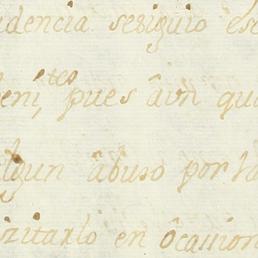 idencia sesiguio ese
eni,tes pues âvn qu
lgun âbuso por ta
izitarlo en ôcasion